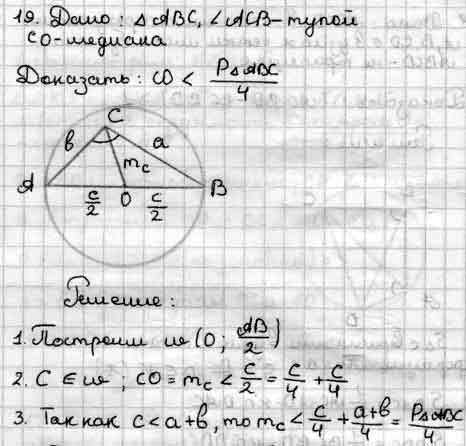 19. Дано: △ABC, ∠ACB - тупой
CO - медиана
Доказать: CO < P△ABC/4
C
b a
mc
A B
c/2 O c/2
Решение:
1. Построим ω (O; AB/2)
2. C ∈ ω; CO = mc < c/2 = c/4 + c/4
3. Так как c < a + b, то mc < c/4 + (a+b)/4 = P△ABC/4